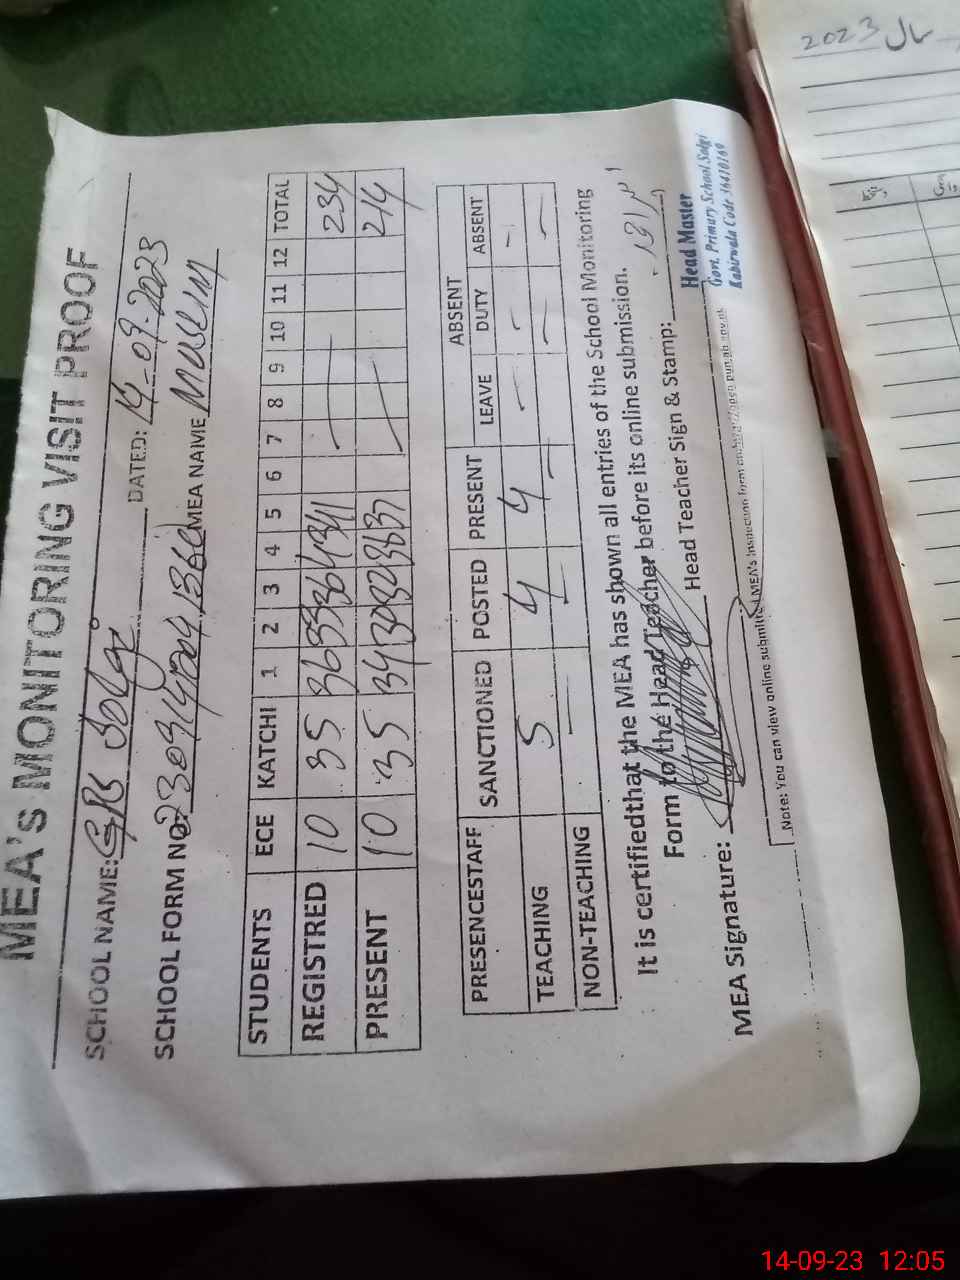 MEA's MONITORING VISIT PROOF
SCHOOL NAME: GPS Solgi DATED: 14-09-2023
SCHOOL FORM NO. MEA NAME
STUDENTS ECE KATCHI 1 2 3 4 5 6 7 8 9 10 11 12 TOTAL
REGISTRED 10 35 36 33 36 43 41 234
PRESENT 10 35 34 30 32 36 37 214
PRESENCESTAFF SANCTIONED POSTED PRESENT LEAVE ABSENT DUTY ABSENT
TEACHING 5 4 4 - - -
NON-TEACHING - - - - - -
It is certifiedthat the MEA has shown all entries of the School Monitoring
Form to the Head Teacher before its online submission.
MEA Signature: Head Teacher Sign & Stamp:
Head Master
Govt. Primary School Solgi
Kabirwala Code 36410169
Note: You can view online submitted MEA's Inspection form on
2023
14-09-23 12:05